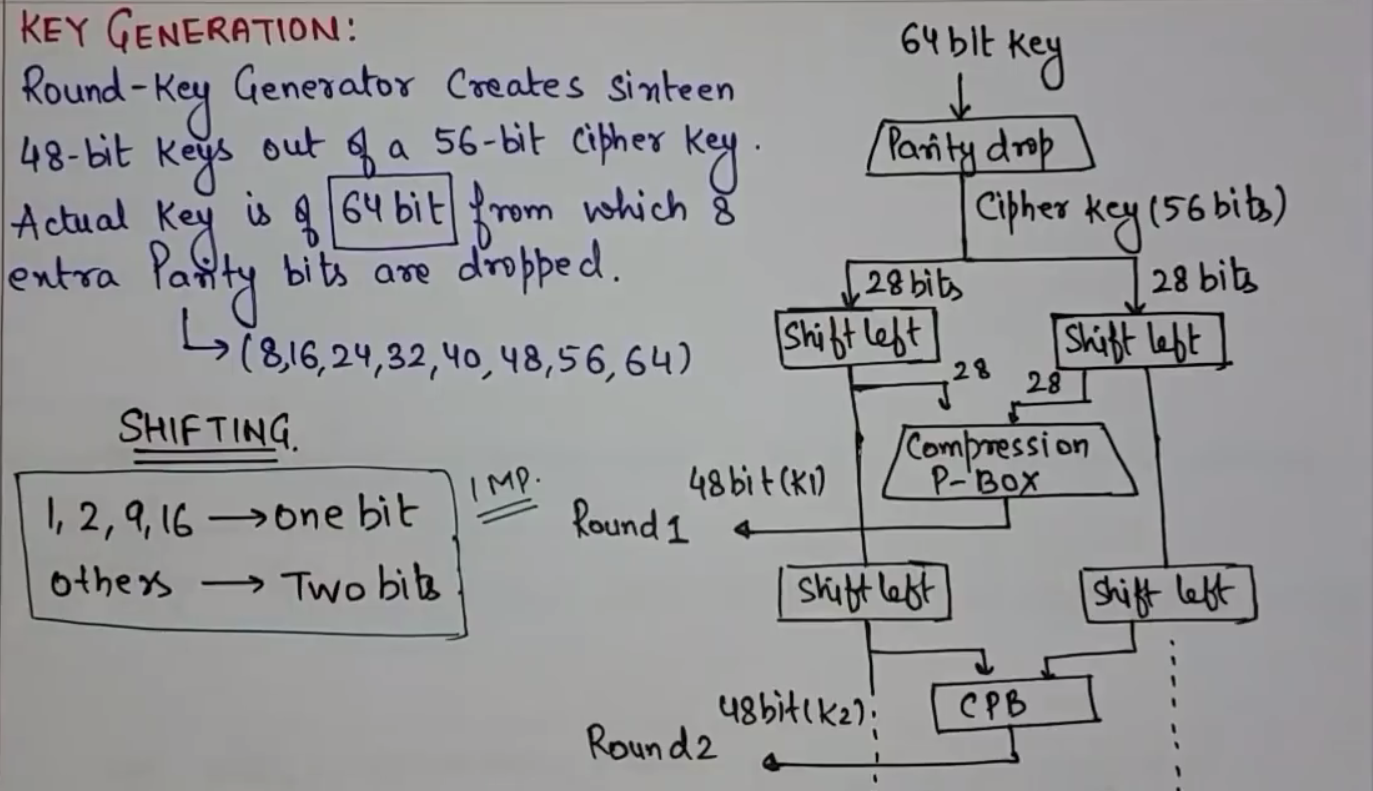 KEY GENERATION:
Round-Key Generator Creates Sixteen
48-bit Keys out of a 56-bit Cipher Key.
Actual Key is of 64 bit from which 8
extra Parity bits are dropped.
(8,16,24,32,40,48,56,64)
SHIFTING.
1, 2, 9, 16 → one bit
others → Two bits
IMP.
64 bit Key
Parity drop
Cipher Key (56 bits)
28 bits
28 bits
Shift left
Shift left
28
28
Compression
P-BOX
48 bit (K1)
Round 1
Shift left
Shift left
CPB
48 bit (K2)
Round 2